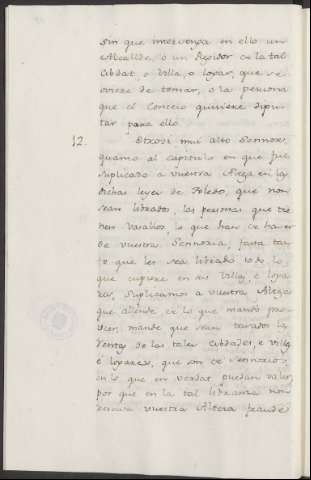 sin que intervenga en ello un
Alcallde, o un Regidor de la tal
Cibdat, o Villa, o logar, que se
oviere de tomar, o la persona
que el Concejo quisiere dipu-
tar para ello.
12. Otrosi mui alto Sennor,
quanto al capitulo en que fue
suplicado a vuestra Alteza en las
dichas leyes de Toledo, que non
sean librados, las personas que tie-
nen Vasallos, lo que han de haver
de vuestra Sennoria, fasta tan-
to que les sea librado todo lo
que cupiere en sus Villas, e loga-
res, Suplicamos a vuestra Alteza
que allende de lo que mandó pro-
veer, mande que sean tasados las
rentas de las tales cibdades, e villas
é logares, que son de Sennorios,
en lo que en verdat puedan valer,
por que en la tal libranza non
reciva vuestra Alteza fraude